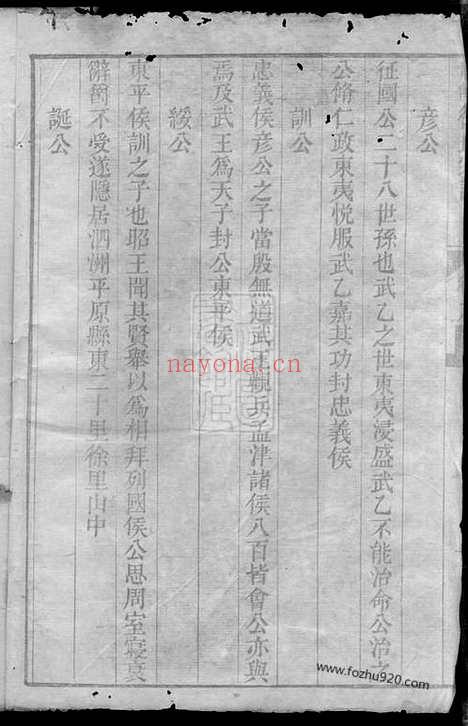 彦公
征國公二十八世孫也武乙之世東夷浸盛武乙不能治命公治之
公脩仁政東夷悦服武乙嘉其功封忠義侯
訓公
忠義侯彦公之子當殷無道武王觀兵孟津諸侯八百皆會公亦與
焉及武王爲天子封公東平侯
綏公
東平侯訓之子也昭王聞其賢舉以爲相拜列國侯公思周室寖衰
辭爵不受遂隱居泗洲平原縣東二十里徐里山中
誕公
nayona.cn
www.fozhu920.com